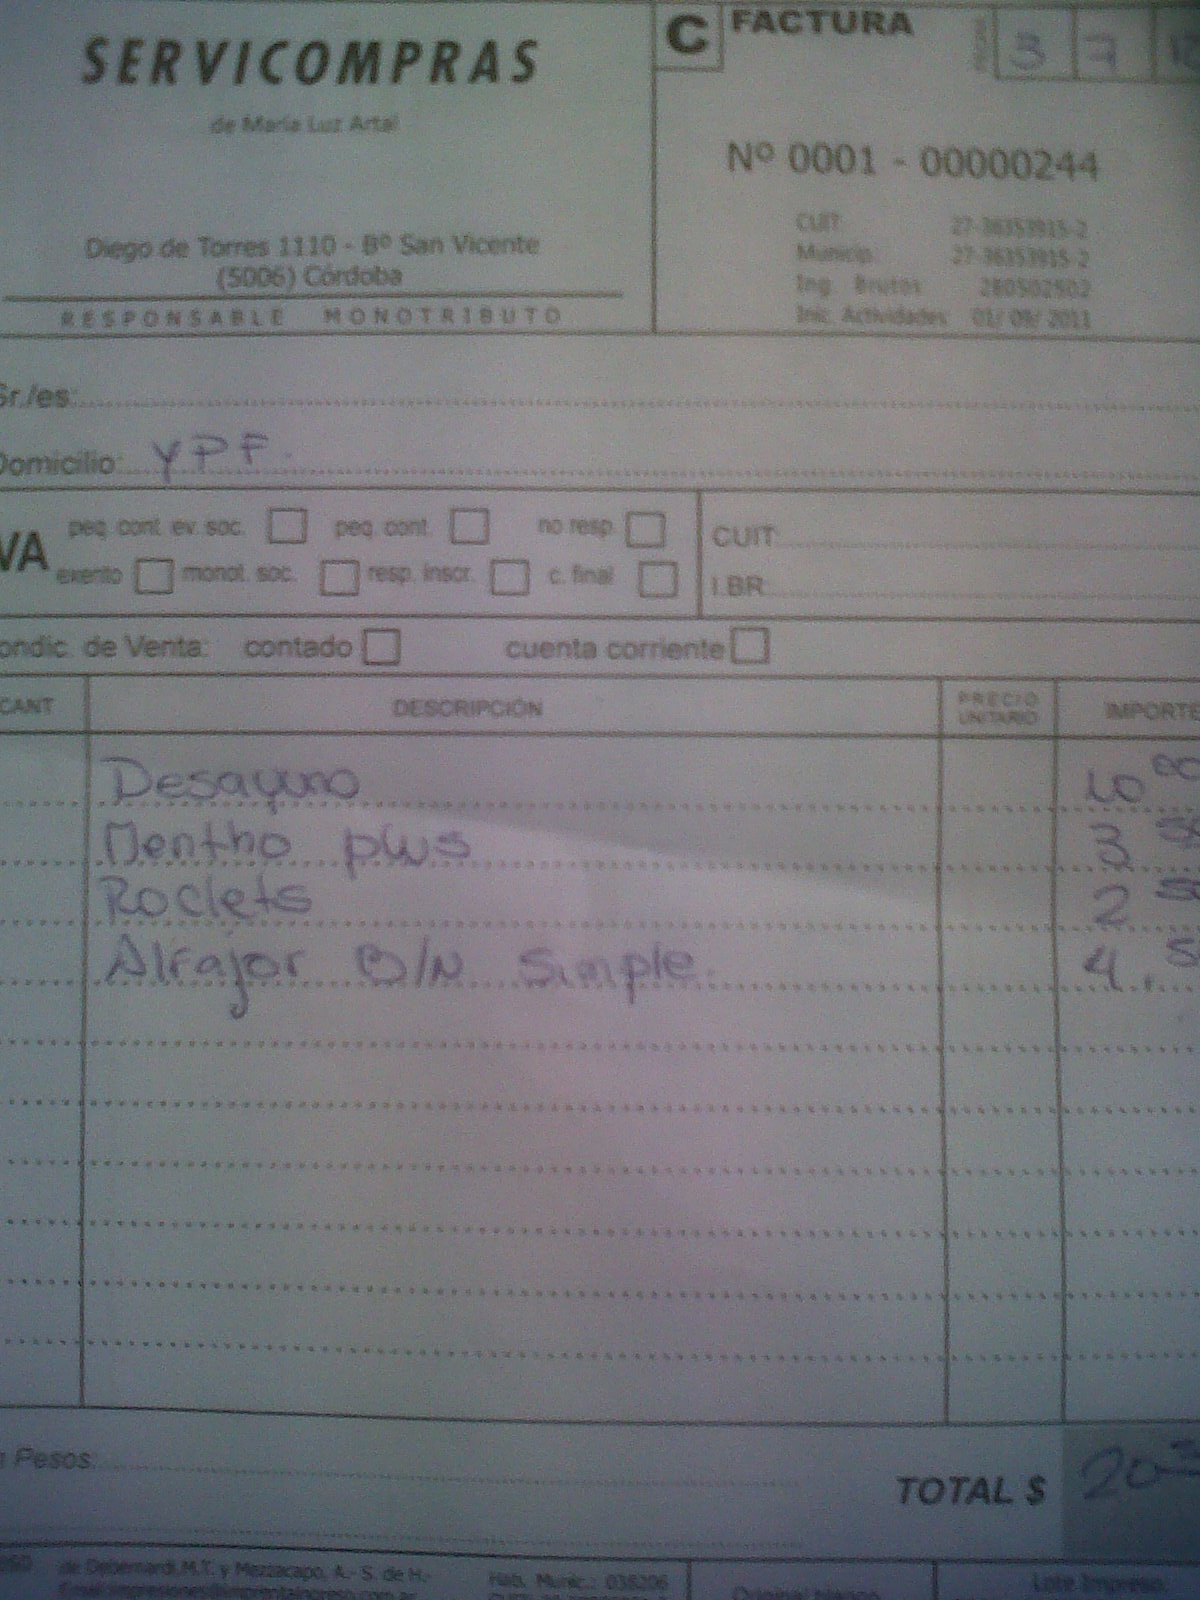 SERVICOMPRAS
de María Luz Artal
Diego de Torres 1110 - Bº San Vicente
(5006) Córdoba
RESPONSABLE MONOTRIBUTO
C FACTURA
3 7
Nº 0001 - 00000244
CUIT: 27-36353915-2
Municip.: 27-36353915-2
Ing. Brutos: 280502502
Inic. Actividades 01/ 09/ 2011
Sr./es:
Domicilio: YPF.
VA
peq. cont. ev. soc. peq. cont. no resp.
exento monot. soc. resp. inscr. c. final
CUIT:
I.BR:
ondic. de Venta: contado cuenta corriente
CANT DESCRIPCIÓN PRECIO UNITARIO IMPORTE
Desayuno 10 00
Mentho plus 3
Roclets 2
Alfajor B/N Simple. 4.
Pesos:
TOTAL $ 20
de Debernardi,M.T. y Mezzacapo, A.- S. de H.-
Hab. Munic.: 036206
Lote Impreso: